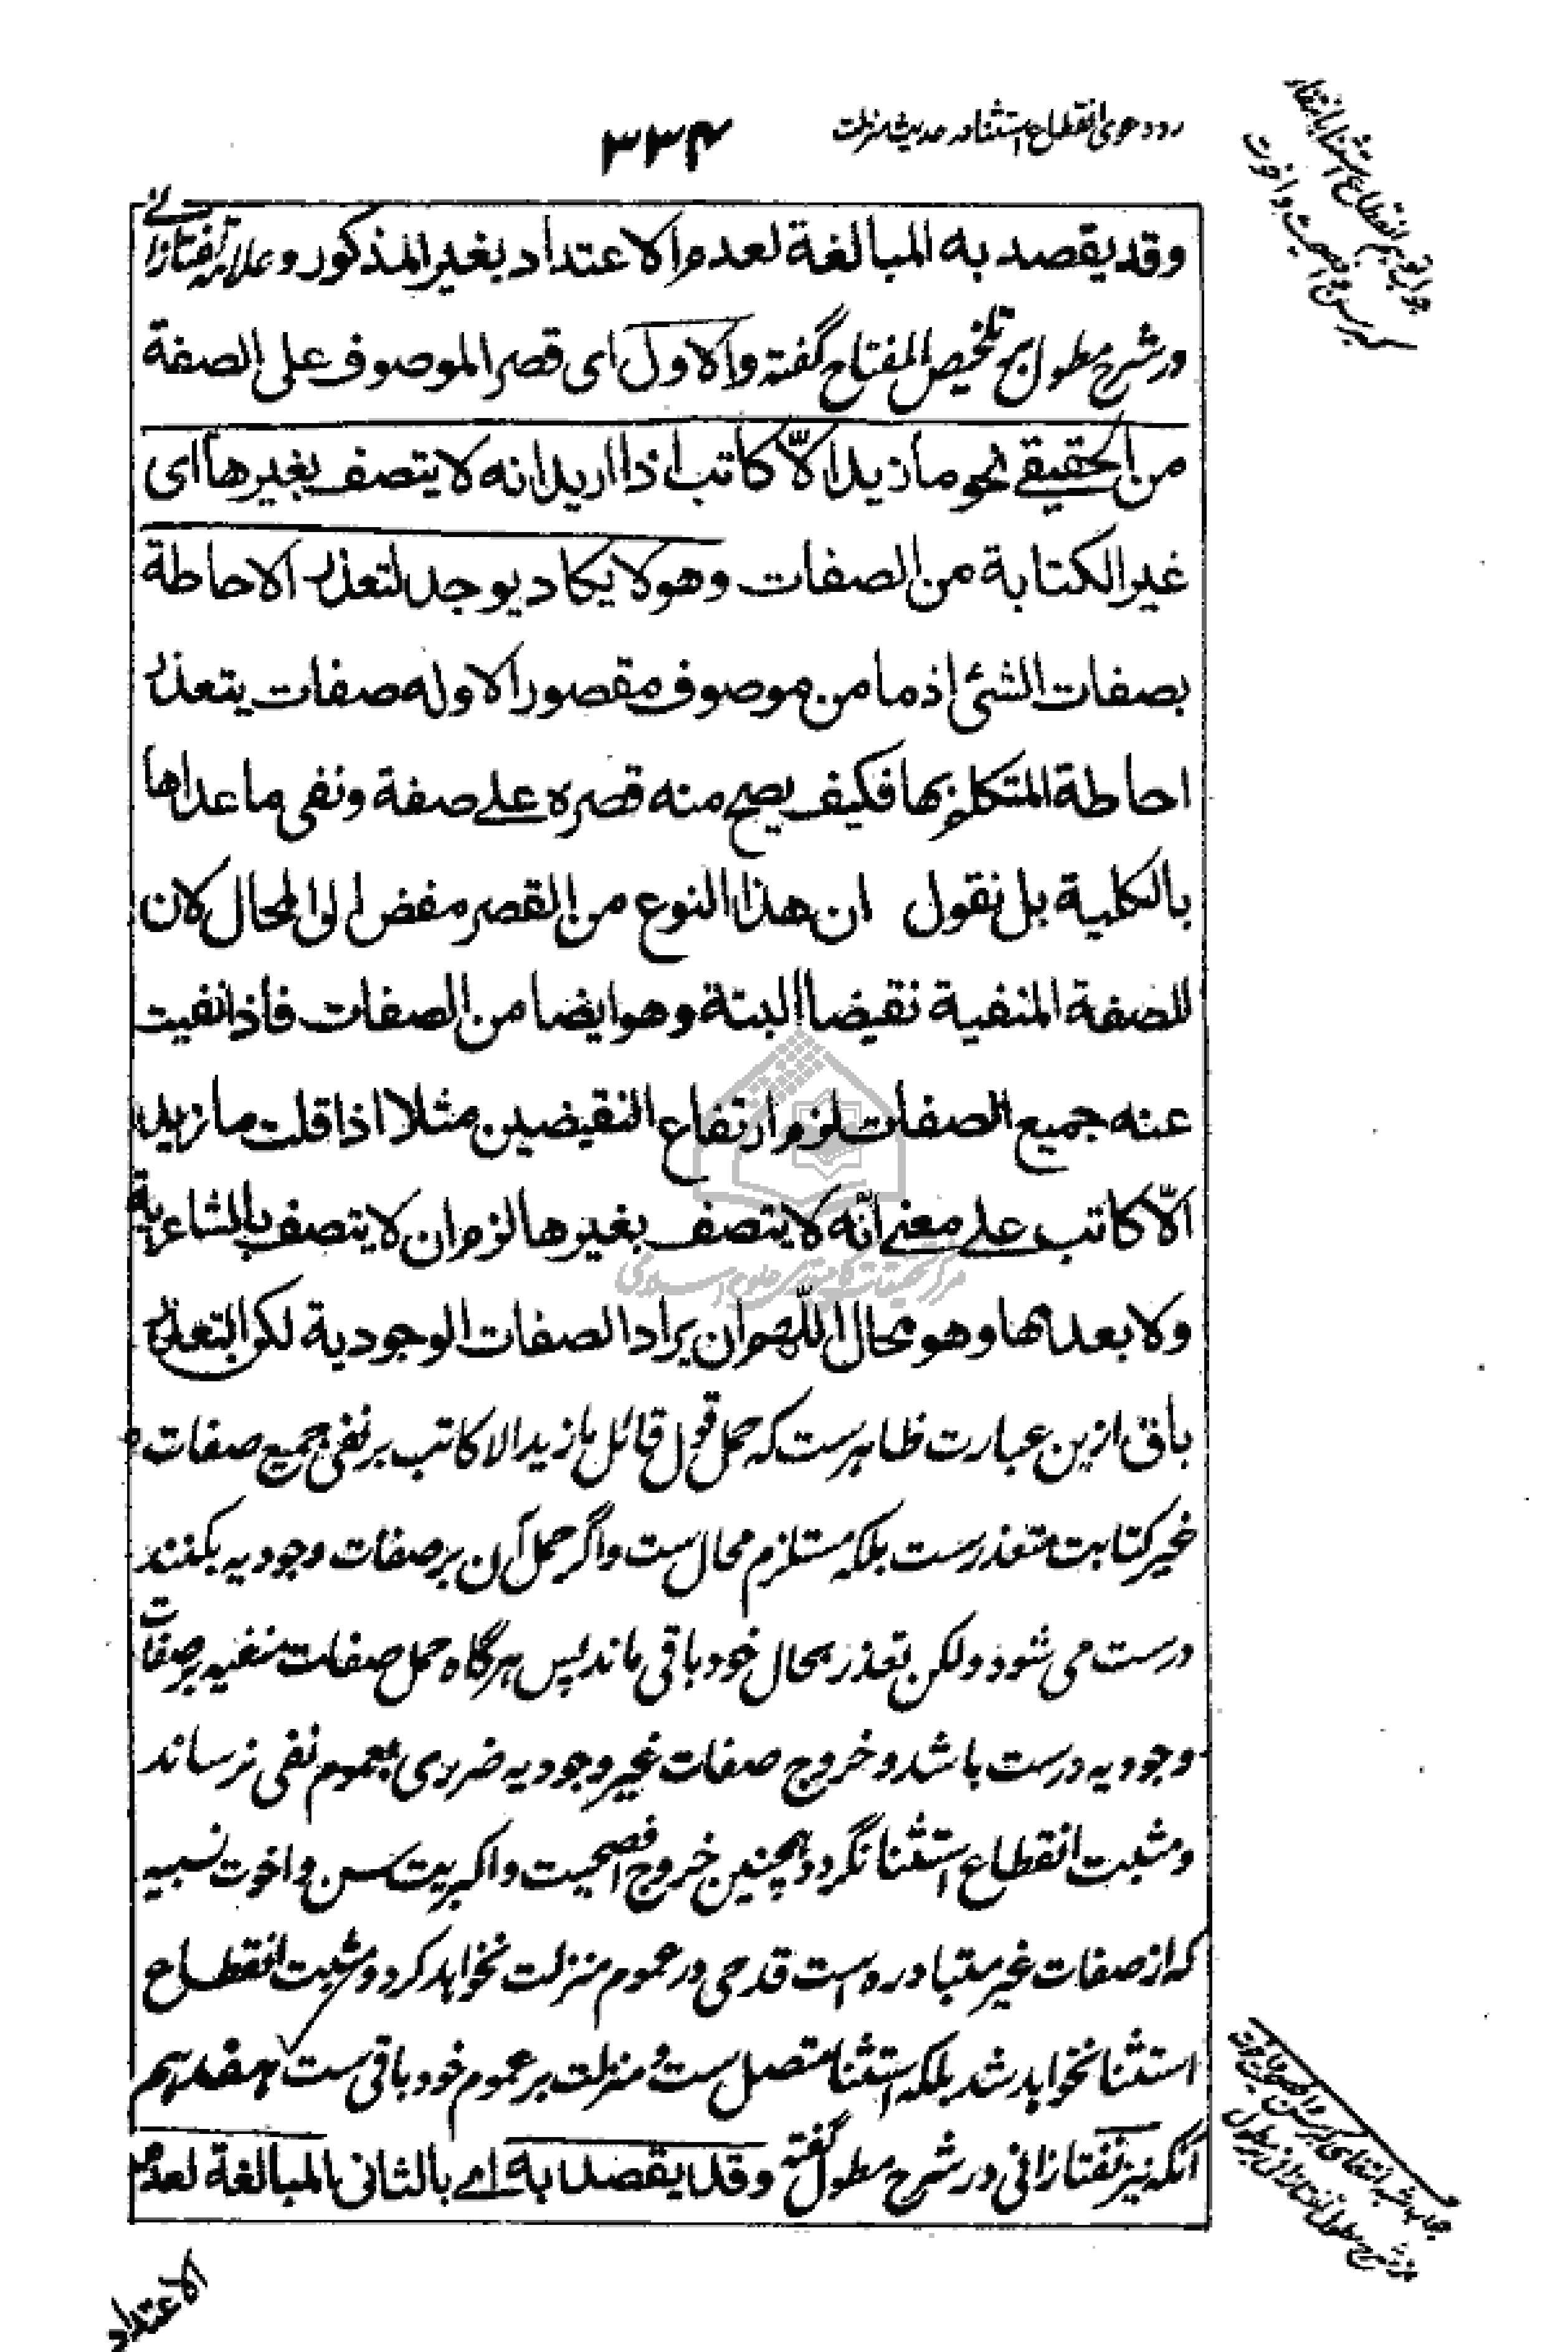 رد دعوی انقطاع استثناء در حدیث منزلت
۳۳۴
جواب توهم انقطاع استثنا بانتفاء
کبر سن و افصحیت و اخوت
وقد يقصد به المبالغة لعدم الاعتداد بغير المذكور و علامه تفتازانی
در شرح مطول بر تلخیص المفتاح گفته والاول ای قصر الموصوف على الصفة
من الحقيقے نحو ما زيد الّا كاتب اذا اريد انه لا يتصف بغيرها اى
غير الكتابة من الصفات وهو لا يكاد يوجد لتعذر الاحاطة
بصفات الشئ اذ ما من موصوف مقصور الا وله صفات يتعذر
احاطة المتكلم بها فكيف يصح منه قصره علے صفة ونفى ما عداها
بالكلية بل نقول ان هذا النوع من القصر مفض الى المحال لان
للصفة المنفية نقيضا البتة وهو ايضا من الصفات فاذا نفيت
عنه جميع الصفات لزم ارتفاع النقيضين مثلا اذا قلت ما زيد
الّا كاتب علے معنے انّه لا يتصف بغيرها لزم ان لا يتصف بالشاعرية
ولا بعدمها وهو محال اللّهم ان يراد الصفات الوجودية لكن التعذر
باق ازین عبارت ظاهرست که حمل قول قائل ما زید الا کاتب بر نفی جمیع صفات
غیر کتابت متعذرست بلکه مستلزم محال ست و اگر حمل آن بر صفات وجودیه بکنند
درست می شود ولکن تعذر بحال خود باقی ماند پس هرگاه حمل صفات منفیه بر صفات
وجودیه درست باشد و خروج صفات غیر وجودیه ضرری بعموم نفی نرساند
و مثبت انقطاع استثنا نگردد همچنین خروج افصحیت و اکبریت سن و اخوت نسبیه
که از صفات غیر متبادره است قدحی در عموم منزلت نخواهد کرد و مثبت انقطاع
استثنا نخواهد شد بلکه استثنا متصل ست و منزلت بر عموم خود باقی ست هفدهم
آنکه نیز تفتازانی در شرح مطول گفته وقد يقصد به اے بالثانى المبالغة لعدم
جواب شبه انتفای کبر سن
در شرح مطول
الاعتداد